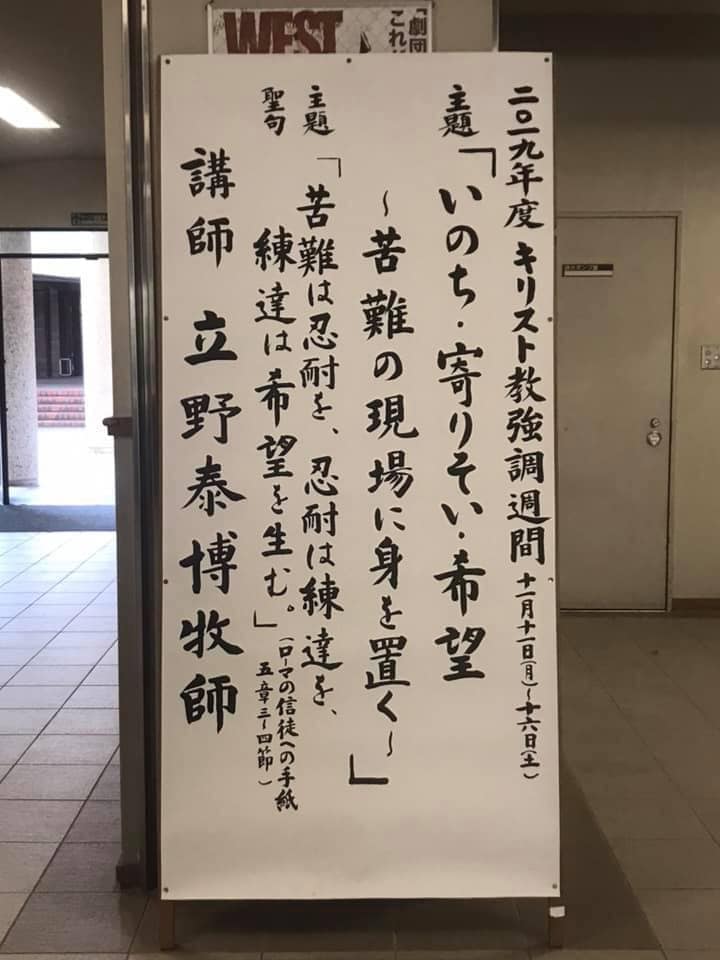 二〇一九年度 キリスト教強調週間 十一月十一日(月)〜十六日(土)
主題「いのち・寄りそい・希望
〜苦難の現場に身を置く〜」
主題
聖句
「苦難は忍耐を、忍耐は練達を、
練達は希望を生む。」
(ローマの信徒への手紙
五章三〜四節)
講師 立野泰博牧師
WEST
「劇団
これ